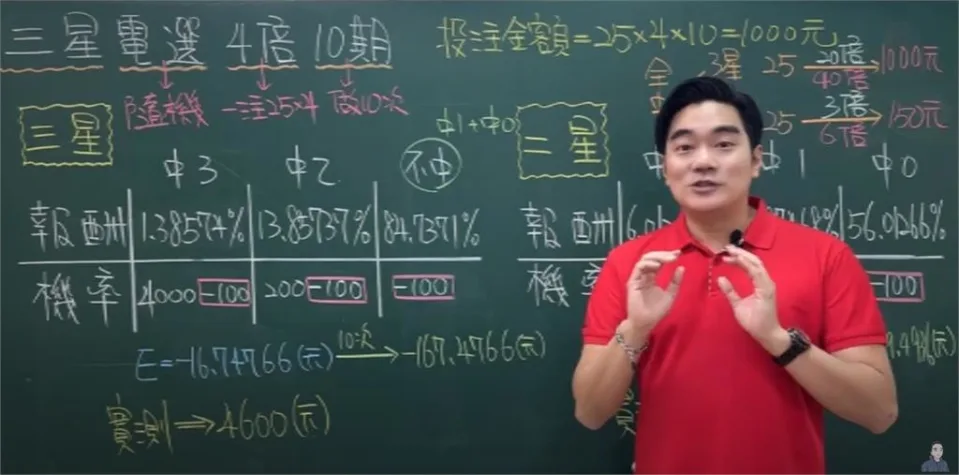 三星電選 4倍 10期
投注金額=25×4×10=1000元
隨機 一注25×4 做10次
3星 25 20倍 40倍 1000元
25 3倍 6倍 150元
三星
中3 中2 不中
中1+中0
報酬 1.38574% 13.85737% 84.7371%
機率 4000-100 200-100 -100
E=-16.74766(元) 10次 -167.4766(元)
實測⇒4600(元)
二星
中1 中0
報酬 56.01266%
機率 -100